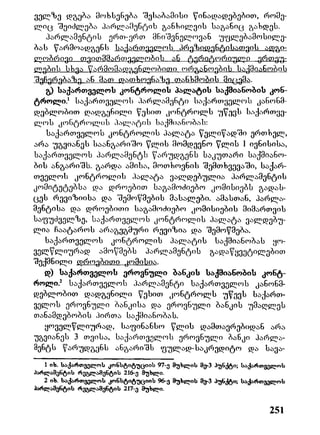 ველზე დგება მოხსენება შესაბამისი წინადადებებით, რომე-
ლიც შეიძლება პარლამენტის განხილვის საგანიც გახდეს.
პარლამენტის ერთ-ერთ მნიშვნელოვან უფლებამოსილე-
ბას წარმოადგენს საქართველოს პრეზიდენტისათვის ადგი-
ლობრივი თვითმმართველობის ან ტერიტორიული ერთეუ-
ლების სხვა წარმომადგენლობითი ორგანოების საქმიანობის
შეჩერებაზე ან მათ დათხოვნაზე თანხმობის მიცემა.
გ) საქართველოს კონტროლის პალატის საქმიანობის კონ-
ტროლი.¹ საქართველოს პარლამენტი საქართველოს კანონმ-
დებლობით დადგენილი წესით კონტროლს უწევს საქართვე-
ლოს კონტროლის პალატის საქმიანობას:
საქართველოს კონტროლის პალატა წელიწადში ერთხელ,
არა უგვიანეს საანგარიშო წლის მომდევნო წლის 1 ივნისისა,
საქართველოს პარლამენტს წარუდგენს საკუთარი საქმიანო-
ბის ანგარიშს. გარდა ამისა, მოთხოვნის შემთხვევაში, საქარ-
თველოს კონტროლის პალატა ვალდებულია პარლამენტის
კომიტეტებსა და დროებით საგამოძიებო კომისიებს გადას-
ცეს რევიზიისა და შემოწმების მასალები. ამასთან, პარლა-
მენტისა და დროებითი საგამოძიებო კომისიების მიმართვის
საფუძველზე, საქართველოს კონტროლის პალატა ვალდებუ-
ლია ჩაატაროს არაგეგმური რევიზია და შემოწმება.
საქართველოს კონტროლის პალატის საქმიანობას ყო-
ველწლიურად ამოწმებს პარლამენტის გადაწყვეტილებით
შექმნილი დროებითი კომისია.
დ) საქართველოს ეროვნული ბანკის საქმიანობის კონტ-
როლი.² საქართველოს პარლამენტი საქართველოს კანონმ-
დებლობით დადგენილი წესით კონტროლს უწევს საქართ-
ველოს ეროვნული ბანკისა და ეროვნული ბანკის უმაღლეს
თანამდებობის პირთა საქმიანობას.
ყოველწლიურად, საფინანსო წლის დამთავრებიდან არა
უგვიანეს 3 თვისა, საქართველოს ეროვნული ბანკი პარლა-
მენტს წარუდგენს ანგარიშს ფულად-საკრედიტო და სავა-
1 იხ. საქართველოს კონსტიტუციის 97-ე მუხლის მე-3 პუნქტი; საქართველოს
პარლამენტის რეგლამენტის 216-ე მუხლი.
2 იხ. საქართველოს კონსტიტუციის 96-ე მუხლის მე-3 პუნქტი; საქართველოს
პარლამენტის რეგლამენტის 217-ე მუხლი.
251